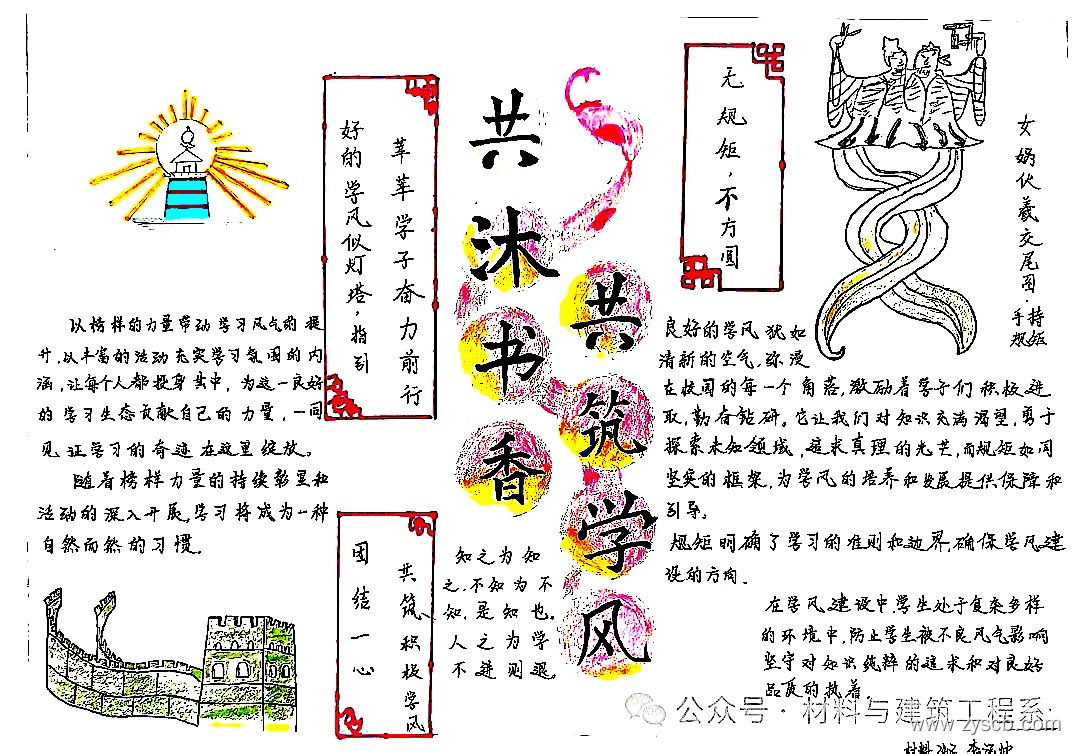 共沐书香
共筑学风
莘莘学子奋力前行
好的学风似灯塔，指引
无规矩，不方圆
女娲伏羲交尾图·
手持
规矩
以榜样的力量带动学习风气的提
升，以丰富的活动充实学习氛围的内
涵，让每个人都投身其中，为这一良好
的学习生态贡献自己的力量，一同
见证学习的奇迹在这里绽放。
随着榜样力量的持续彰显和
活动的深入开展，学习将成为一种
自然而然的习惯。
良好的学风犹如
清新的空气，弥漫
在校园的每一个角落，激励着学子们积极进
取，勤奋钻研。它让我们对知识充满渴望，勇于
探索未知领域，追求真理的光芒，而规矩如同
坚实的框架，为学风的培养和发展提供保障和
引导。
规矩明确了学习的准则和边界，确保学风建
设的方向。
在学风建设中，学生处于复杂多样
的环境中，防止学生被不良风气影响
坚守对知识纯粹的追求和对良好
品质的执着。
共筑积极学风
团结一心
知之为知
之，不知为不
知，是知也。
人之为学
不进则退。
公众号·材料与建筑工程系
www.zyscb.com